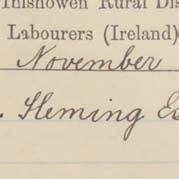 Inishowen Rural Dis
Labourers (Ireland)
November
. Fleming E